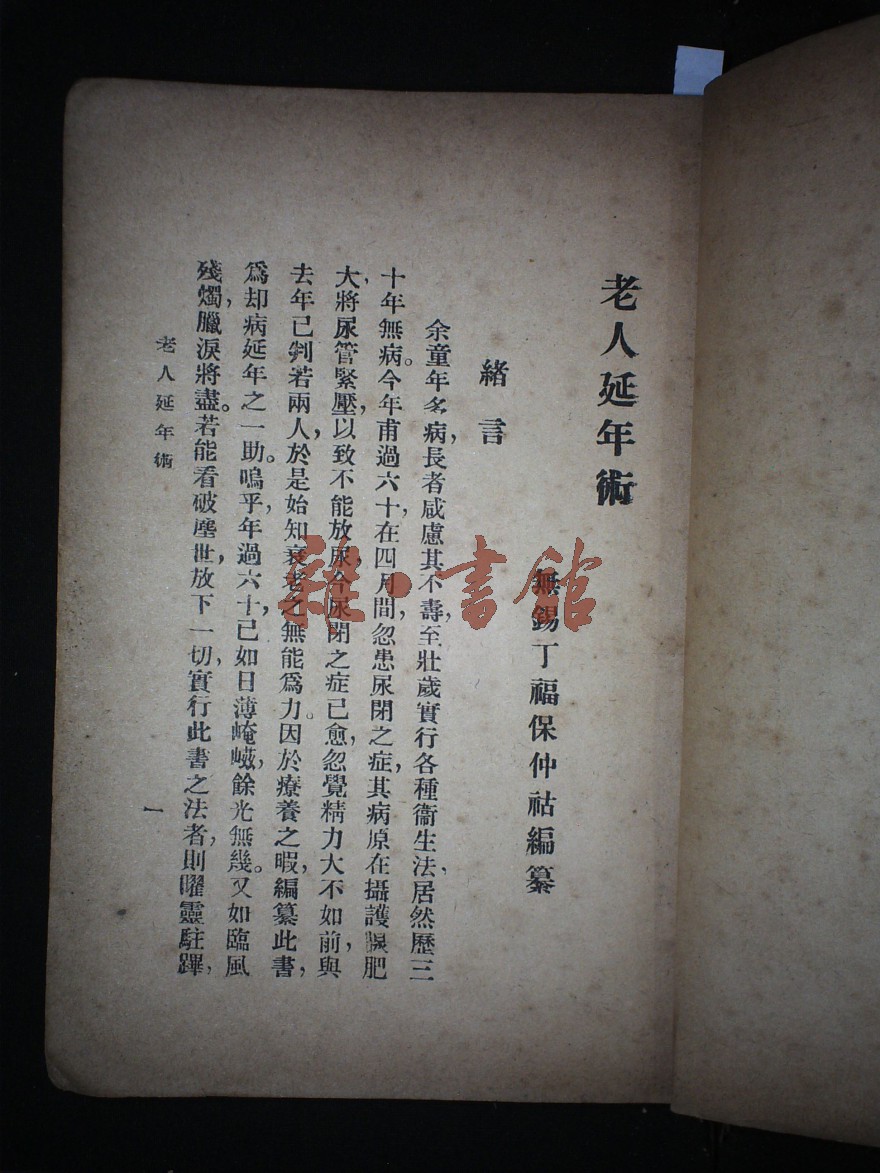 老人延年術
無錫丁福保仲祜編纂
緒言
余童年多病，長者咸慮其不壽，至壯歲實行各種衞生法，居然歷三
十年無病。今年甫過六十，在四月間，忽患尿閉之症，其病原在攝護腺肥
大，將尿管緊壓，以致不能放尿，今尿閉之症已愈，忽覺精力大不如前，與
去年已判若兩人，於是始知衰老之無能爲力。因於療養之暇，編纂此書，
爲却病延年之一助。嗚乎，年過六十，已如日薄崦嵫，餘光無幾。又如臨風
殘燭，臘淚將盡。若能看破塵世，放下一切，實行此書之法者，則曜靈駐蹕，
老人延年術
一
雜·書館